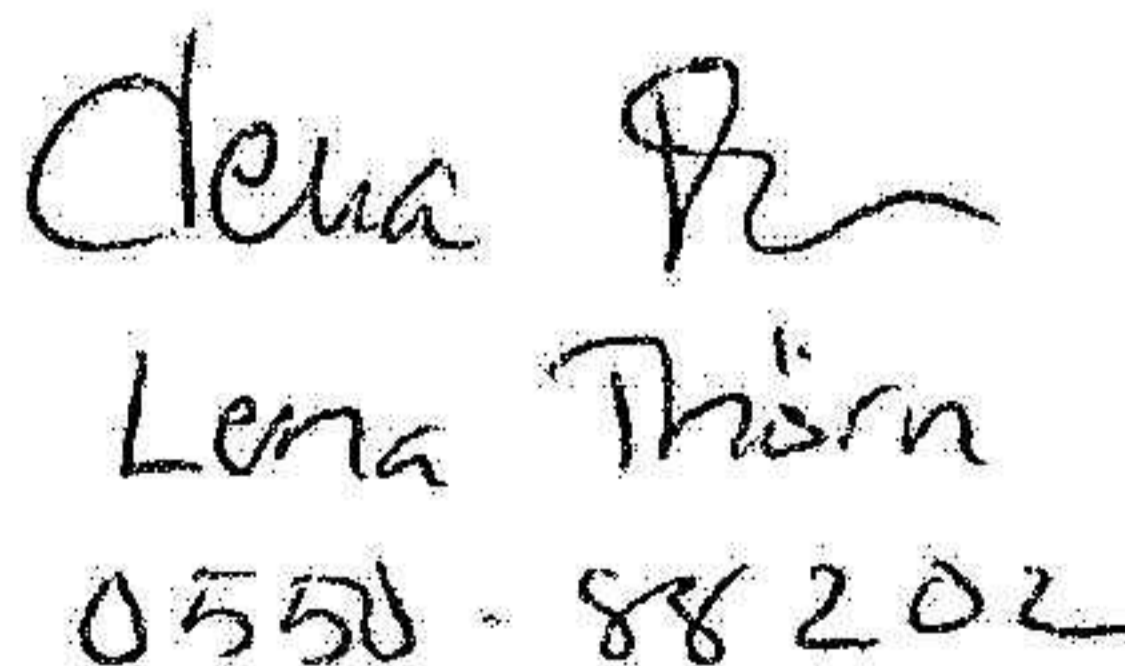 Lena
Lena Thörn
0550-88202